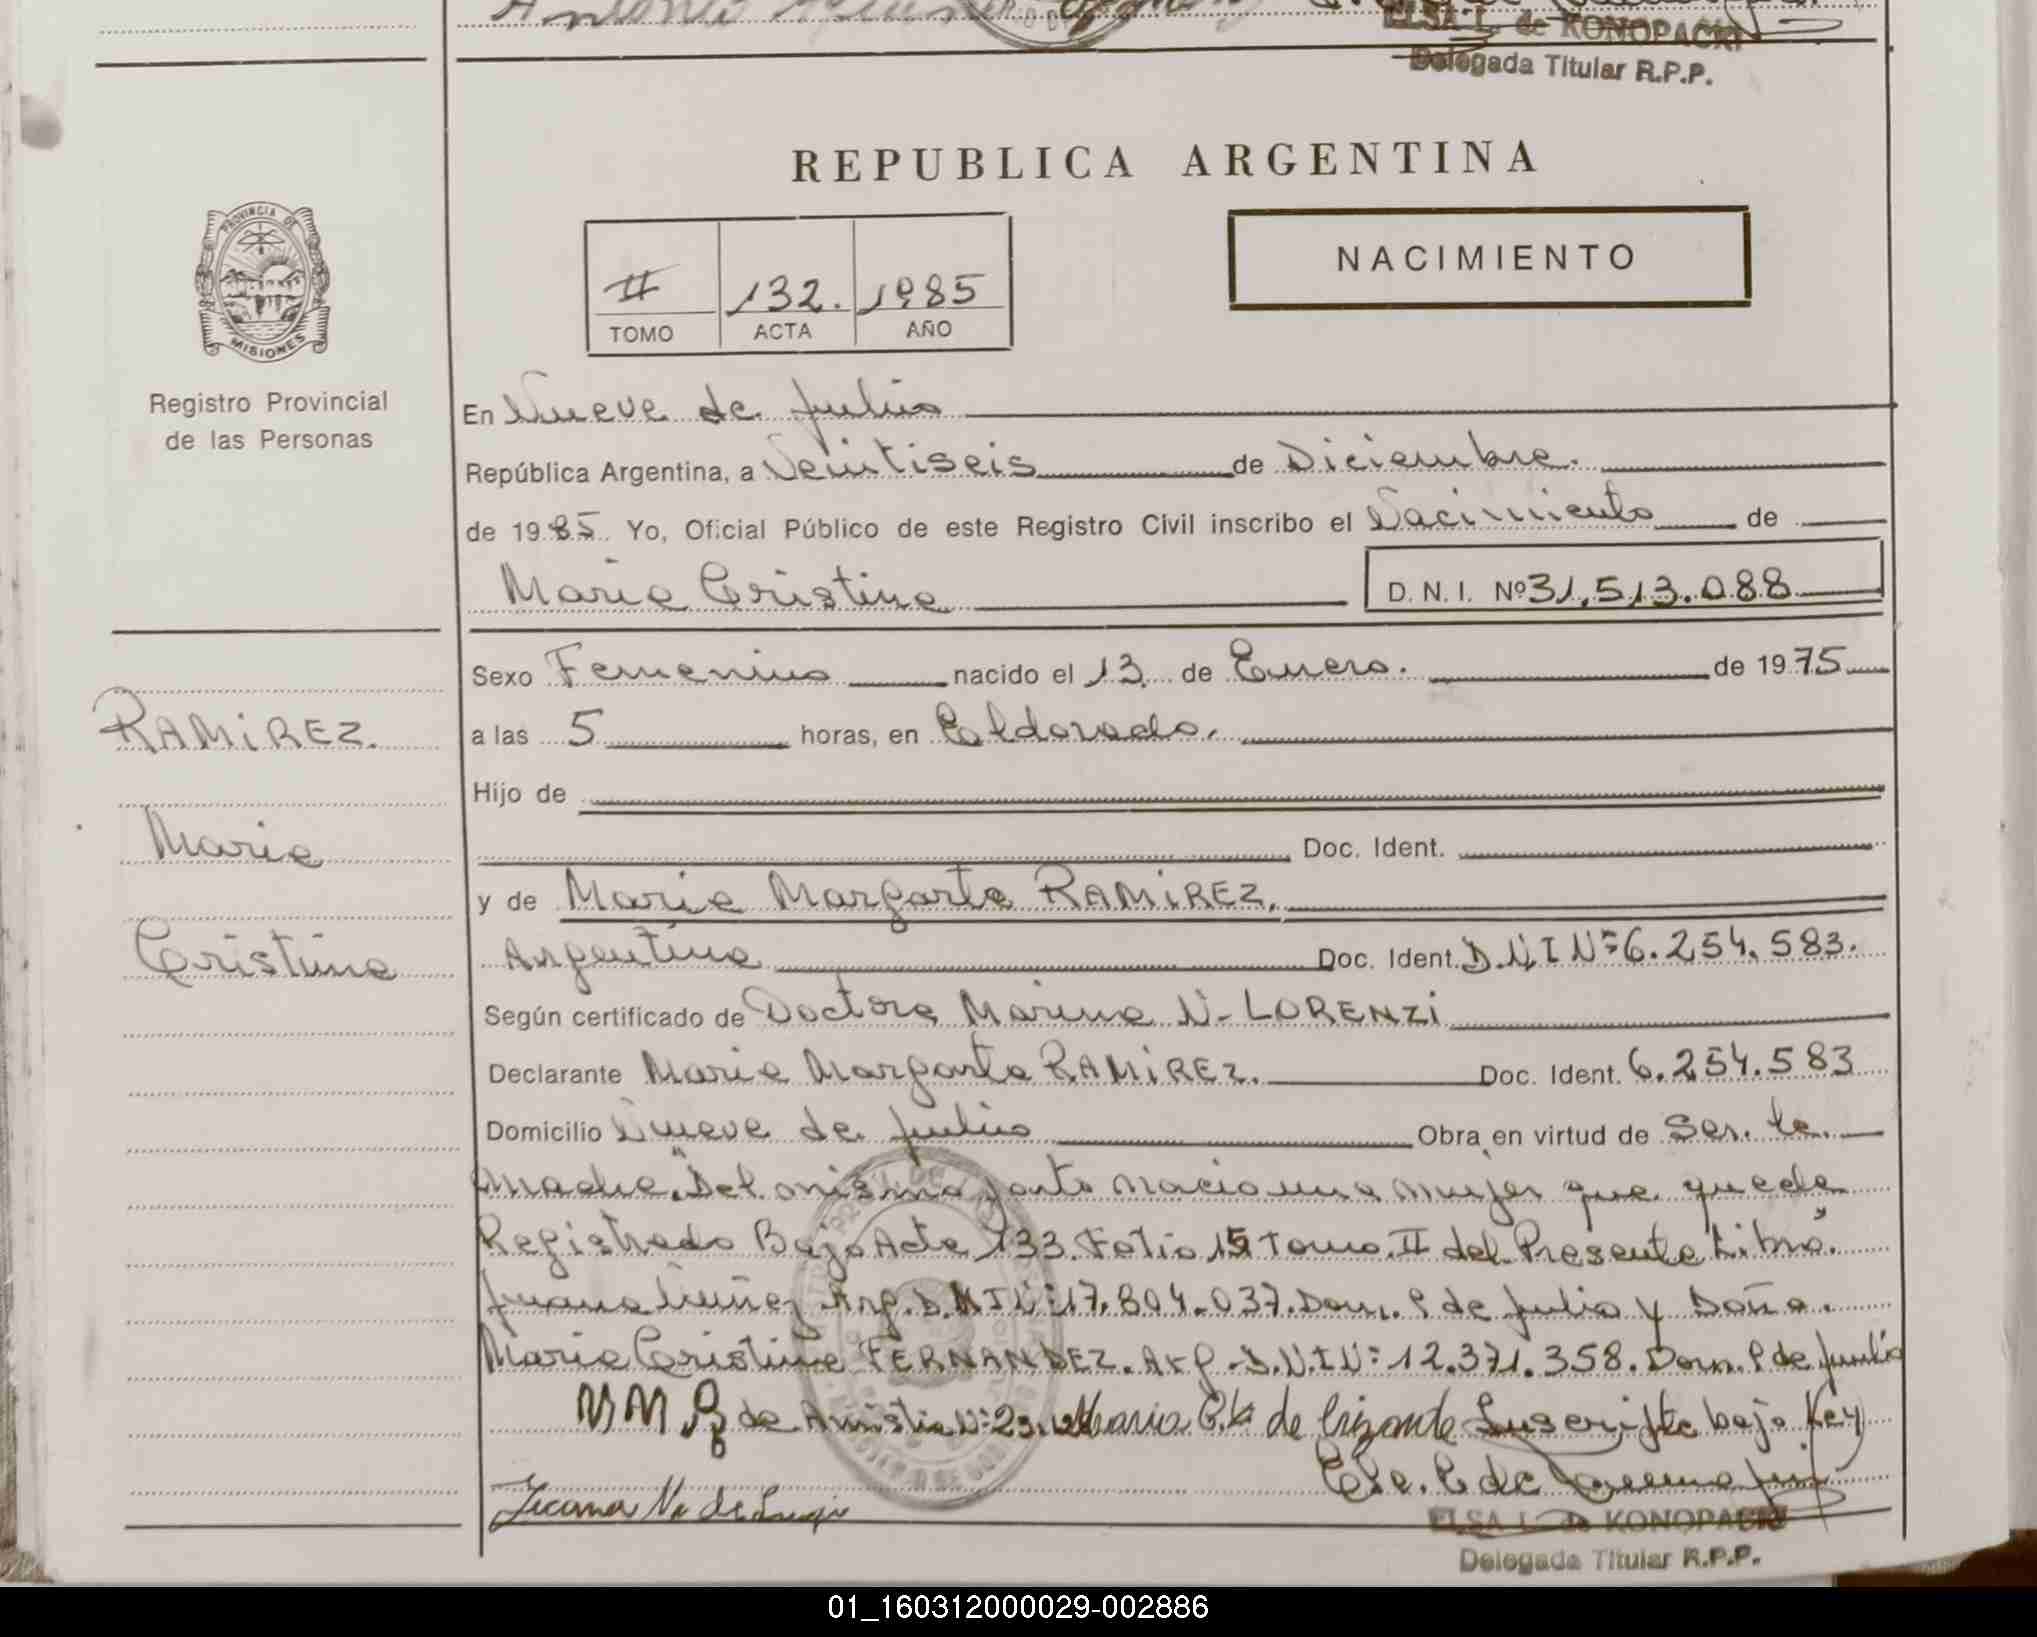 ELSA L. de KONOPACKI
Delegada Titular R.P.P.
REPUBLICA ARGENTINA
PROVINCIA DE
MISIONES
Registro Provincial
de las Personas
II 132. 1985
TOMO ACTA AÑO
NACIMIENTO
En Nueve de Julio
República Argentina, a Veintiseis de Diciembre.
de 1985. Yo, Oficial Público de este Registro Civil inscribo el Nacimiento de
Maria Cristina D. N. I. Nº 31.513.088
RAMIREZ.
Maria
Cristina
Sexo Femenino nacido el 13 de Enero. de 1975
a las 5 horas, en Eldorado.
Hijo de
Doc. Ident.
y de Maria Margarta RAMIREZ.
Argentina Doc. Ident. D.N.I Nº 6.254.583.
Según certificado de Doctora Marina N. LORENZI
Declarante Maria Margarta RAMIREZ. Doc. Ident. 6.254.583
Domicilio Nueve de Julio Obra en virtud de Ser. la.
madre. "Del mismo parto nacio una mujer que queda
Registrado Bajo Acta 133 Folio 15 Tomo II del Presente Libro".
Juana Nuñez Arg. D.N.I Nº 17.804.037. Dom. 9 de Julio y Doña.
Maria Cristina FERNANDEZ. Arg. D.N.I Nº 12.371.358. Dom. 9 de Julio
M M R de Amistia Nº 23. Maria de Inscripta bajo Ley
Juana N. de
ELSA L. de KONOPACKI
Delegada Titular R.P.P.
01_160312000029-002886